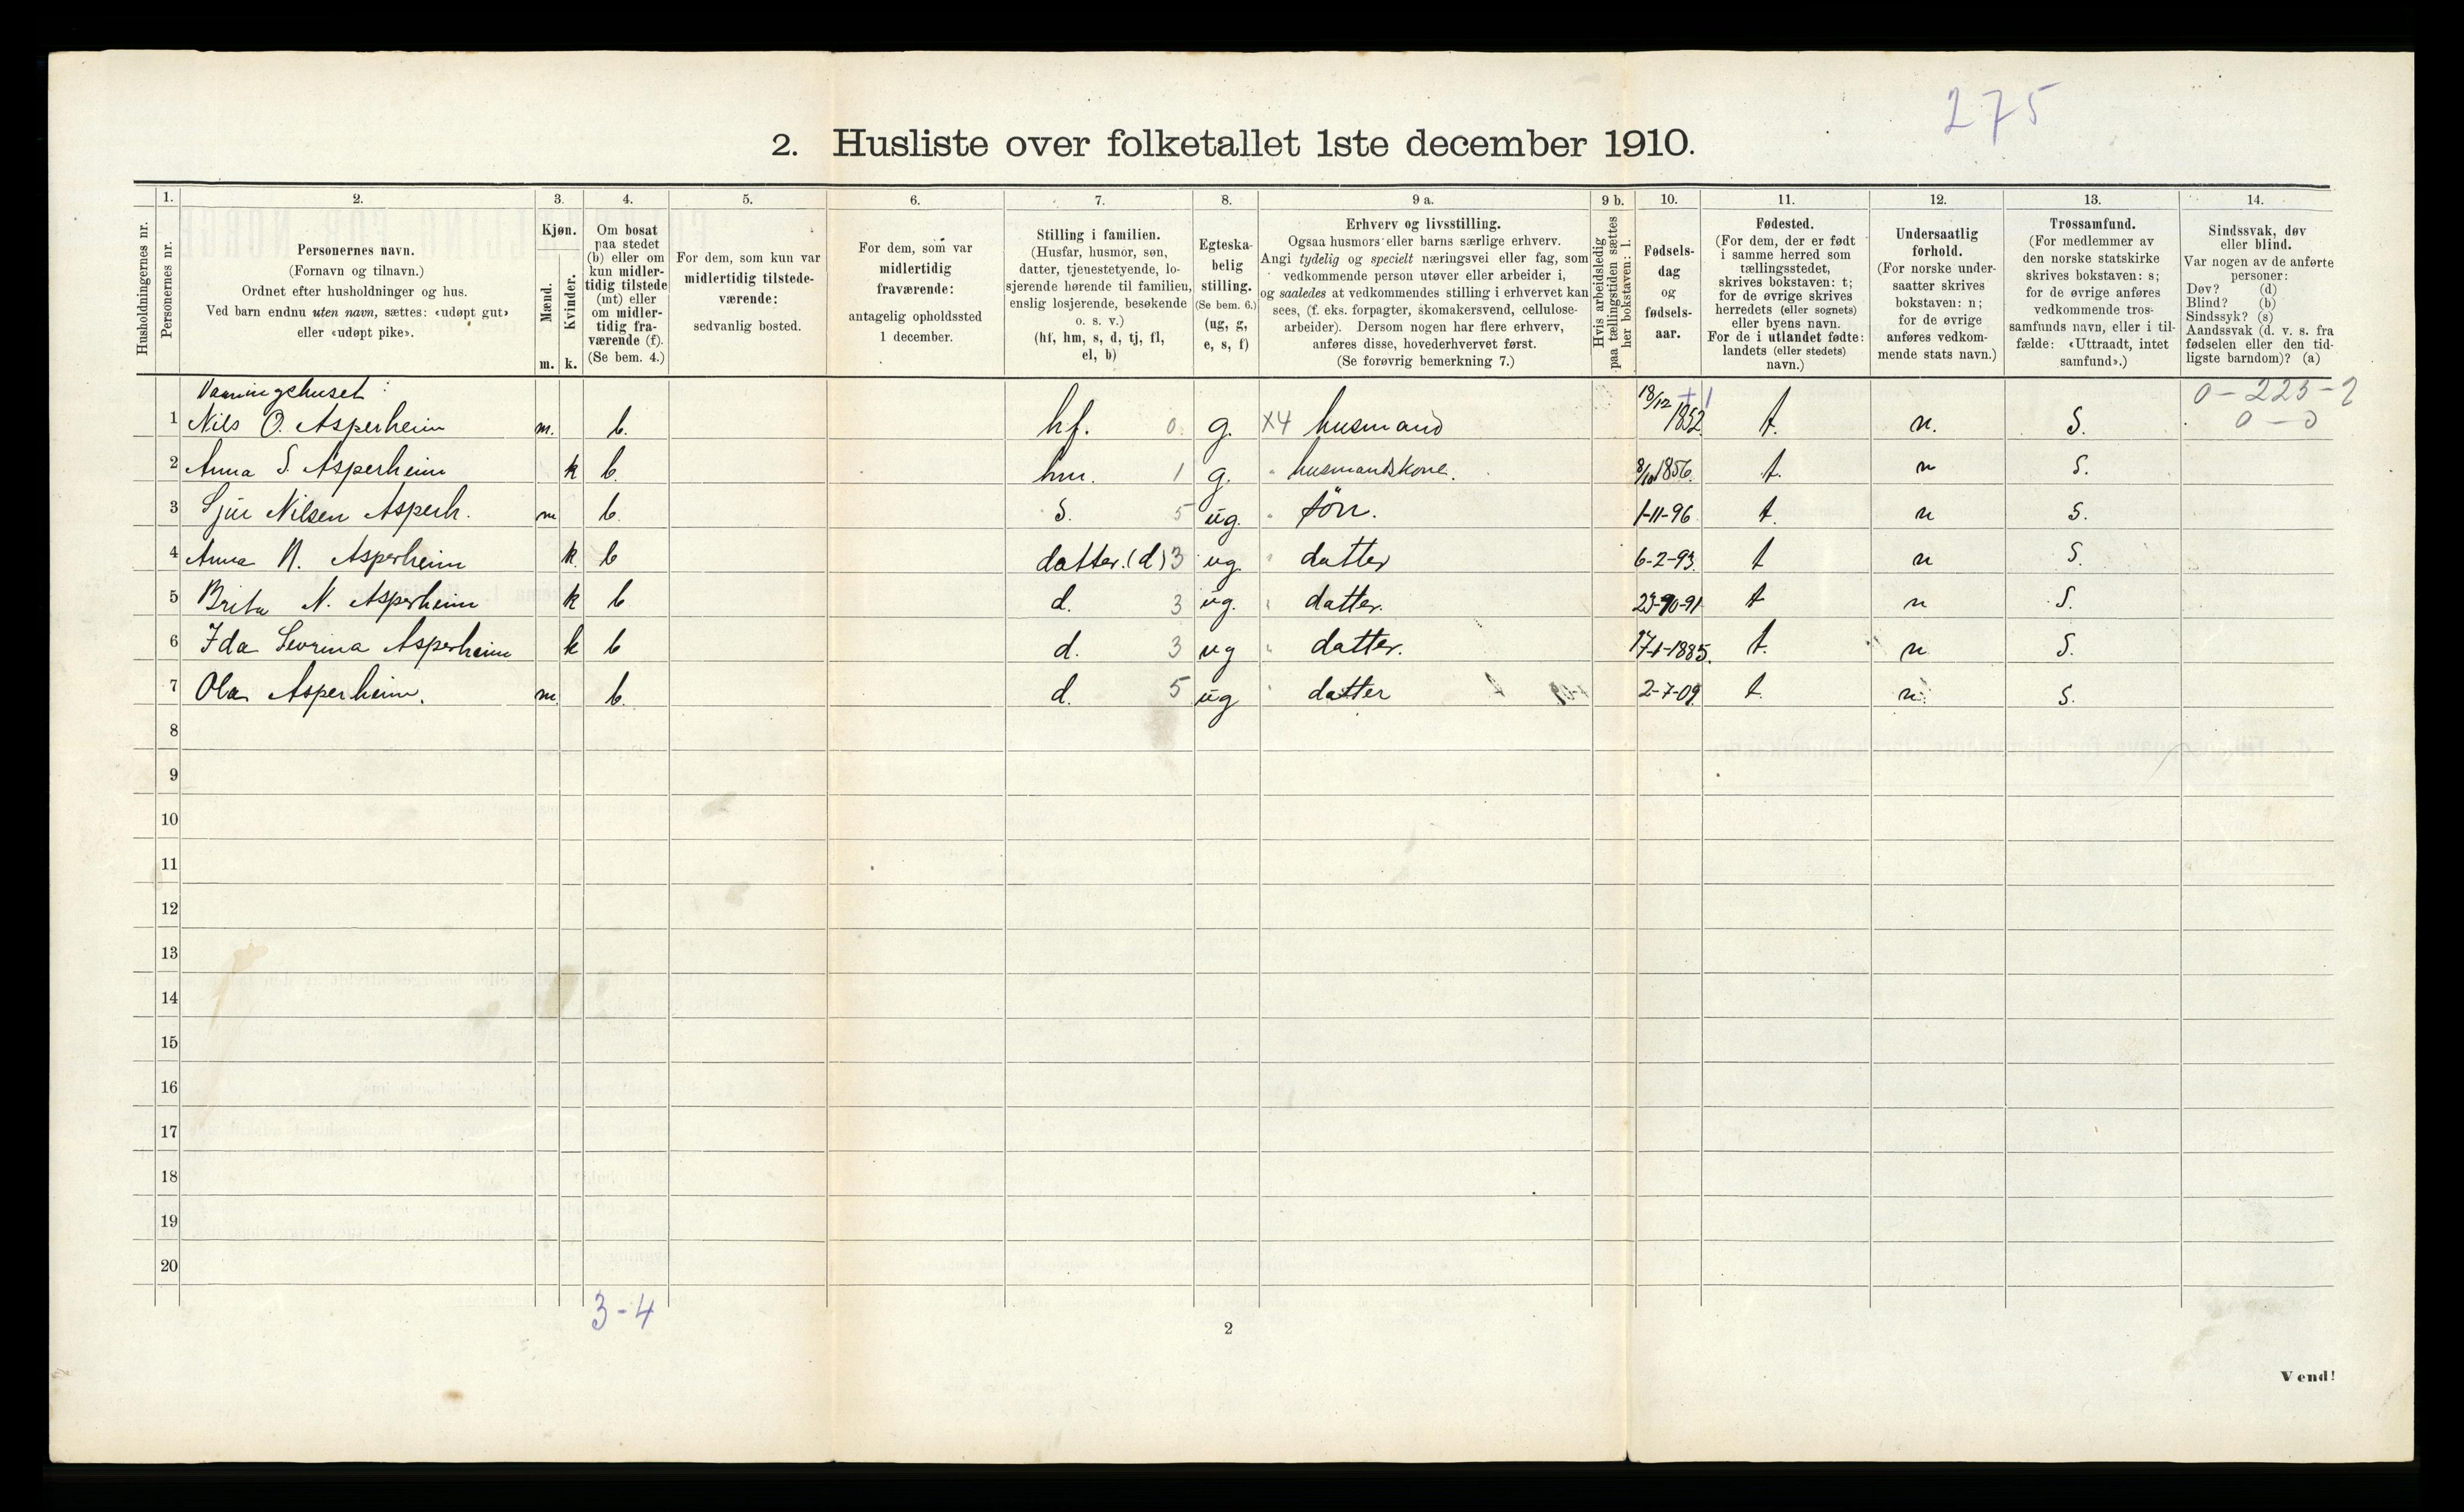 275
2. Husliste over folketallet 1ste december 1910.
Husholdningernes nr.
1.
Personernes nr.
2.
Personernes navn.
(Fornavn og tilnavn.)
Ordnet efter husholdninger og hus.
Ved barn endnu uten navn, sættes: «udøpt gut»
eller «udøpt pike».
3.
Kjøn.
Mænd.
m.
Kvinder.
k.
4.
Om bosat
paa stedet
(b) eller om
kun midler-
tidig tilstede
(mt) eller
om midler-
tidig fra-
værende (f).
(Se bem. 4.)
5.
For dem, som kun var
midlertidig tilstede-
værende:
sedvanlig bosted.
6.
For dem, som var
midlertidig
fraværende:
antagelig opholdssted
1 december.
7.
Stilling i familien.
(Husfar, husmor, søn,
datter, tjenestetyende, lo-
sjerende hørende til familien,
enslig losjerende, besøkende
o. s. v.)
(hf, hm, s, d, tj, fl,
el, b)
8.
Egteska-
belig
stilling.
(Se bem. 6.)
(ug, g,
e, s, f)
9 a.
Erhverv og livsstilling.
Ogsaa husmors eller barns særlige erhverv.
Angi tydelig og specielt næringsvei eller fag, som
vedkommende person utøver eller arbeider i,
og saaledes at vedkommendes stilling i erhvervet kan
sees, (f. eks. forpagter, skomakersvend, cellulose-
arbeider). Dersom nogen har flere erhverv,
anføres disse, hovederhvervet først.
(Se forøvrig bemerkning 7.)
9 b.
Hvis arbeidsledig
paa tællingstiden sættes
her bokstaven: l.
10.
Fødsels-
dag
og
fødsels-
aar.
11.
Fødested.
(For dem, der er født
i samme herred som
tællingsstedet,
skrives bokstaven: t;
for de øvrige skrives
herredets (eller sognets)
eller byens navn.
For de i utlandet fødte:
landets (eller stedets)
navn.)
12.
Undersaatlig
forhold.
(For norske under-
saatter skrives
bokstaven: n;
for de øvrige
anføres vedkom-
mende stats navn.)
13.
Trossamfund.
(For medlemmer av
den norske statskirke
skrives bokstaven: s;
for de øvrige anføres
vedkommende tros-
samfunds navn, eller i til-
fælde: «Uttraadt, intet
samfund».)
14.
Sindssvak, døv
eller blind.
Var nogen av de anførte
personer:
Døv? (d)
Blind? (b)
Sindssyk? (s)
Aandssvak (d. v. s. fra
fødselen eller den tid-
ligste barndom)? (a)
Vaaningshuset: 0-225-2
1 Nils O. Asperheim m. b. hf. 0. g. X4 husmand 18/12 1852 t. n. S. 0-0
2 Anna S. Asperheim k b. hm. 1 g. " husmandskone. 8/10 1856. t. n S.
3 Sjur Nilsen Asperh. m b. S. 5 ug. " sön. 1-11-96 t. n S.
4 Anna N. Asperheim k. b datter. (d) 3 ug. " datter 6-2-93. t n S.
5 Brita N. Asperheim k b d. 3 ug. " datter. t n S.
6 Ida Sevrina Asperheim k b d. 3 ug " datter. 17-1-1885. t. n S.
7 Ola Asperheim. m. b. d. 5 ug " datter 2-7-09. t. n. S.
8
9
10
11
12
13
14
15
16
17
18
19
20
3-4
2
Vend!